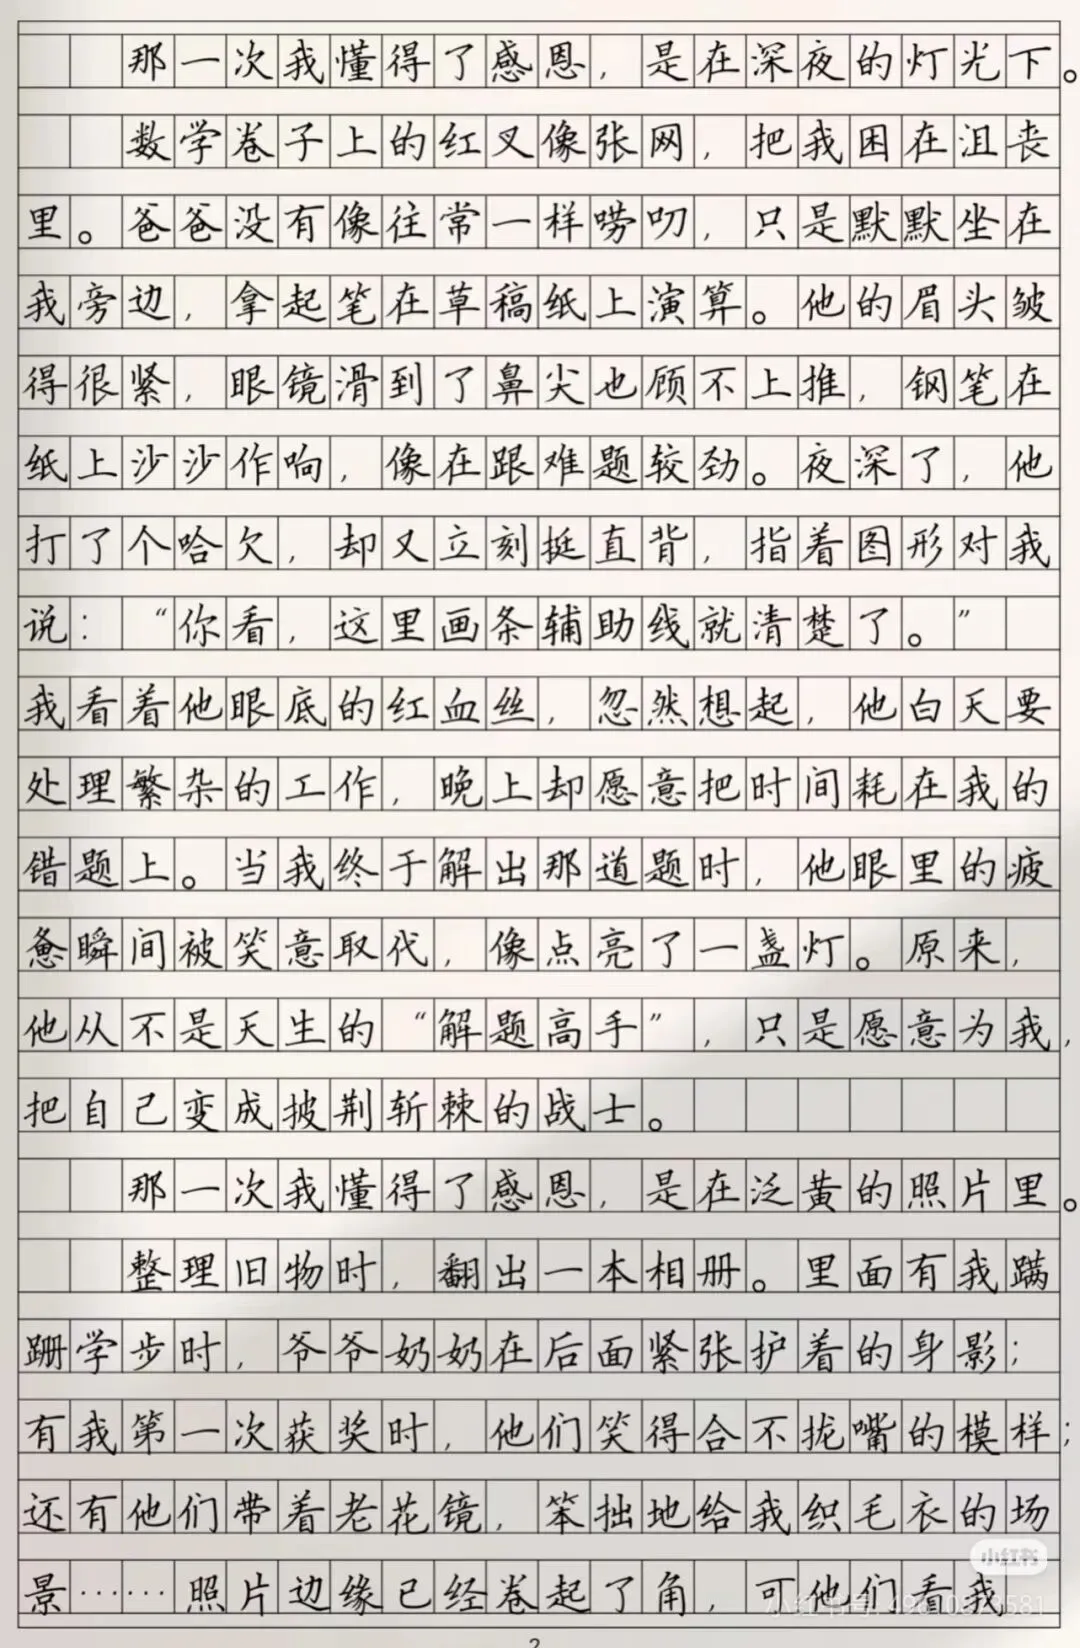 那一次我懂得了感恩，是在深夜的灯光下。
数学卷子上的红叉像张网，把我困在沮丧
里。爸爸没有像往常一样唠叨，只是默默坐在
我旁边，拿起笔在草稿纸上演算。他的眉头皱
得很紧，眼镜滑到了鼻尖也顾不上推，钢笔在
纸上沙沙作响，像在跟难题较劲。夜深了，他
打了个哈欠，却又立刻挺直背，指着图形对我
说：“你看，这里画条辅助线就清楚了。”
我看着他眼底的红血丝，忽然想起，他白天要
处理繁杂的工作，晚上却愿意把时间耗在我的
错题上。当我终于解出那道题时，他眼里的疲
惫瞬间被笑意取代，像点亮了一盏灯。原来，
他从不是天生的“解题高手”，只是愿意为我，
把自己变成披荆斩棘的战士。
那一次我懂得了感恩，是在泛黄的照片里。
整理旧物时，翻出一本相册。里面有我蹒
跚学步时，爷爷奶奶在后面紧张护着的身影；
有我第一次获奖时，他们笑得合不拢嘴的模样；
还有他们带着老花镜，笨拙地给我织毛衣的场
景……照片边缘已经卷起了角，可他们看我
小红书
2